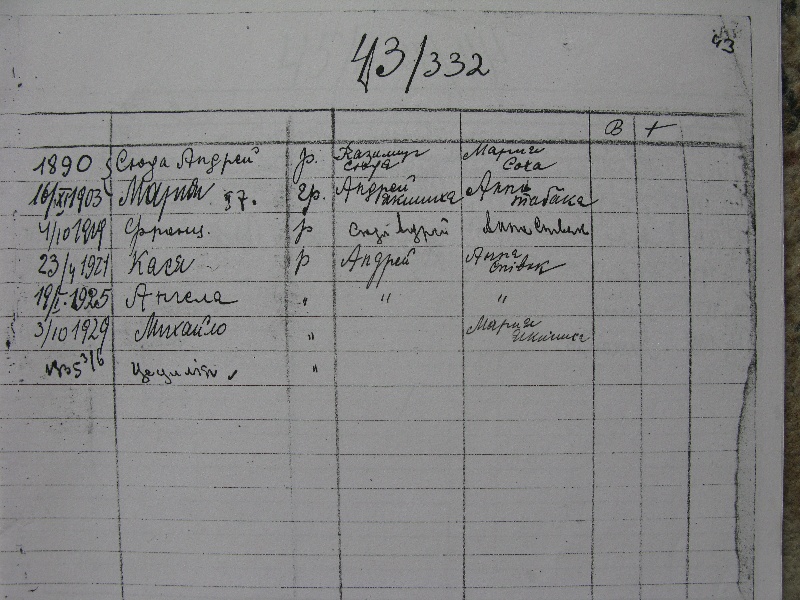 43/332
43
В +
1890 Сюда Андрей р. Казимир Сюда Мария Соха
16/XI 1903 Мария 37. гр. Андрей Якимиха Анна Табака
4/10 1919 Франц. р Сюда Андрій Анна Співак
23/V 1921 Кася р Андрей Анна Співак
19/I. 1925 Ангела " " "
3/10 1929 Михайло " Мария Якимиха
1935 3/6 Цецилія "